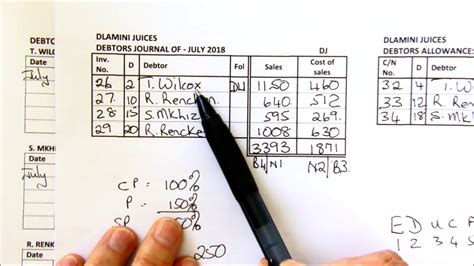 DLAMINI JUICES
DEBTORS JOURNAL OF - JULY 2018 DJ
Inv. No. D Debtor Fol Sales Cost of sales
26 2 T. Wilcox DL1 1150 460
27 10 R. Rencken 640 512
28 15 S. Mkhiz 595 269
29 20 R. Rencke 1008 630
3393 1871
B4 N1 N2 B3
CP = 100%
P = 150%
SP 250%
250
DEBTO
T. WIL
Date
July
S. MKHI
Date
July
R. RENK
Date
DLAMINI JU
DEBTORS ALLOWANCES
C/N No. D Debtor
32 4 T. W
33 12 R.
34 18 S.
E D U C F
1 2 3 4 5